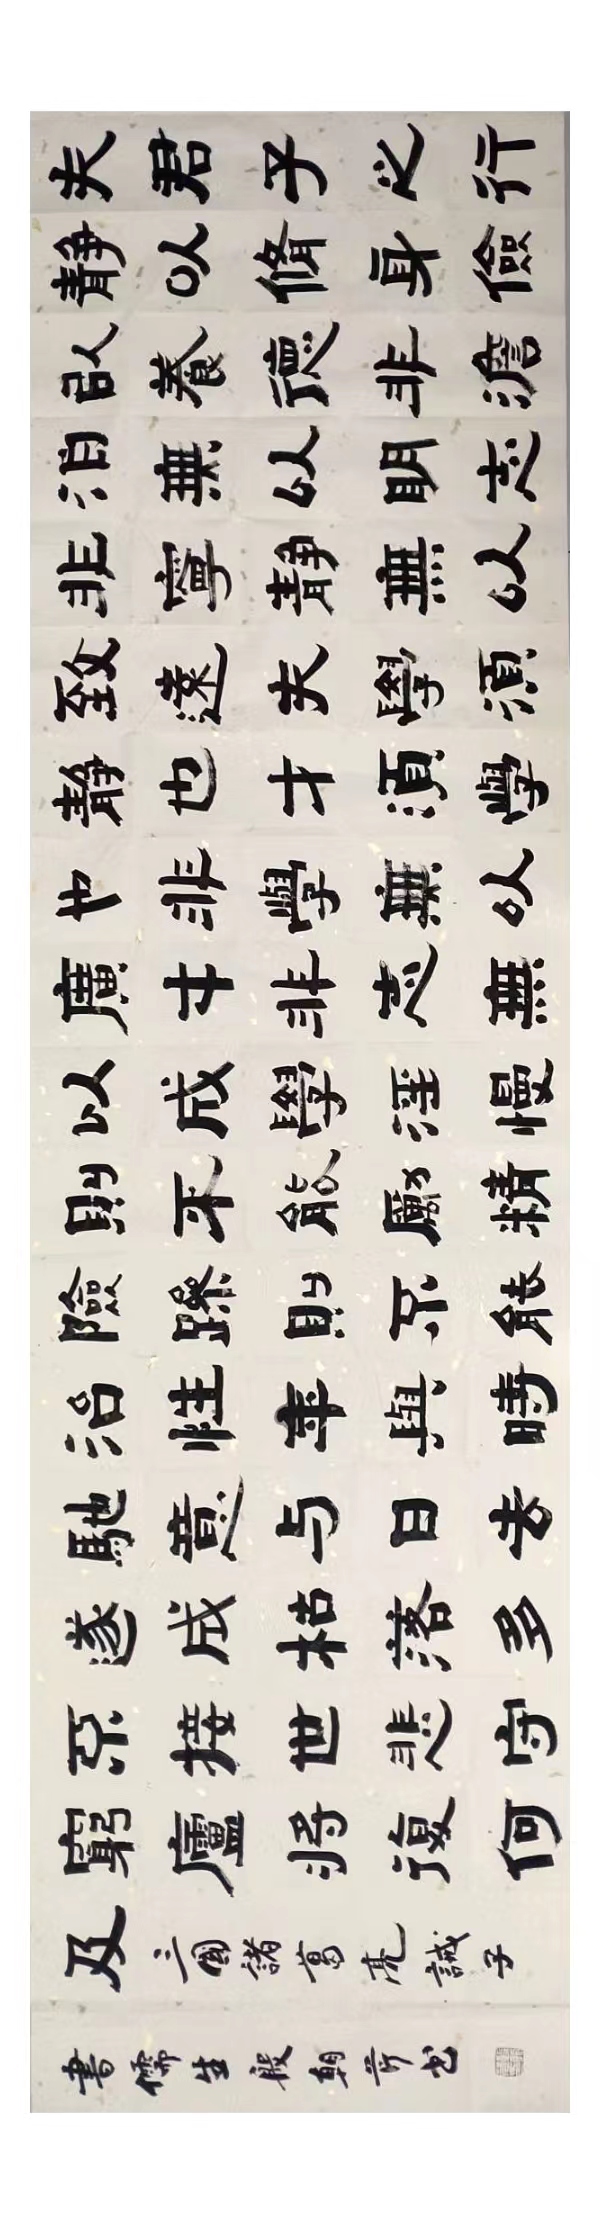 夫君子之行
靜以脩身儉
以養德非澹
泊無以明志
非寧靜無以
致遠夫學須
靜也才須學
也非學無以
廣才非志無
以成學淫慢
則不能勵精
險躁則不能
治性年與時
馳意与日去
遂成枯落多
不接世悲守
窮廬将復何
及
三國諸葛亮誡子
書儒生殷朝书